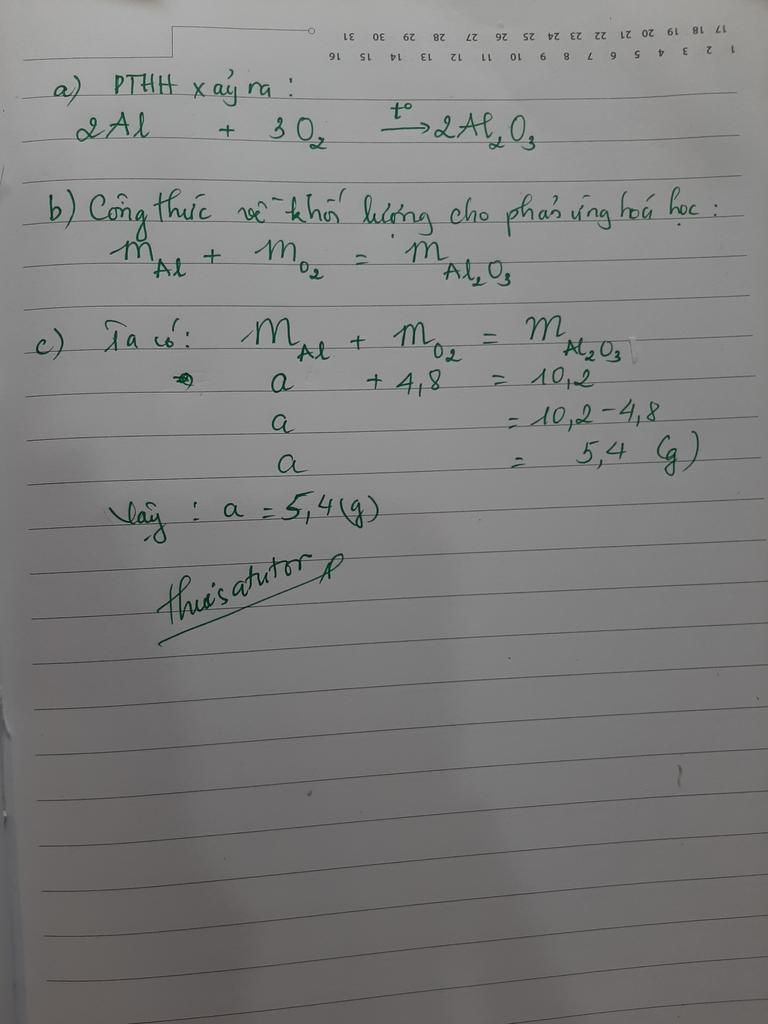 17 18 19 20 21 22 23 24 25 26 27 28 29 30 31
1 2 3 4 5 6 7 8 9 10 11 12 13 14 15 16
a) PTHH xảy ra :
2Al + 3O₂ t° → 2Al₂O₃
b) Công thức về khối lượng cho phản ứng hoá học :
m Al + m O₂ = m Al₂O₃
c) Ta có: m Al + m O₂ = m Al₂O₃
a + 4,8 = 10,2
a = 10,2 - 4,8
a = 5,4 (g)
Vậy : a = 5,4 (g)